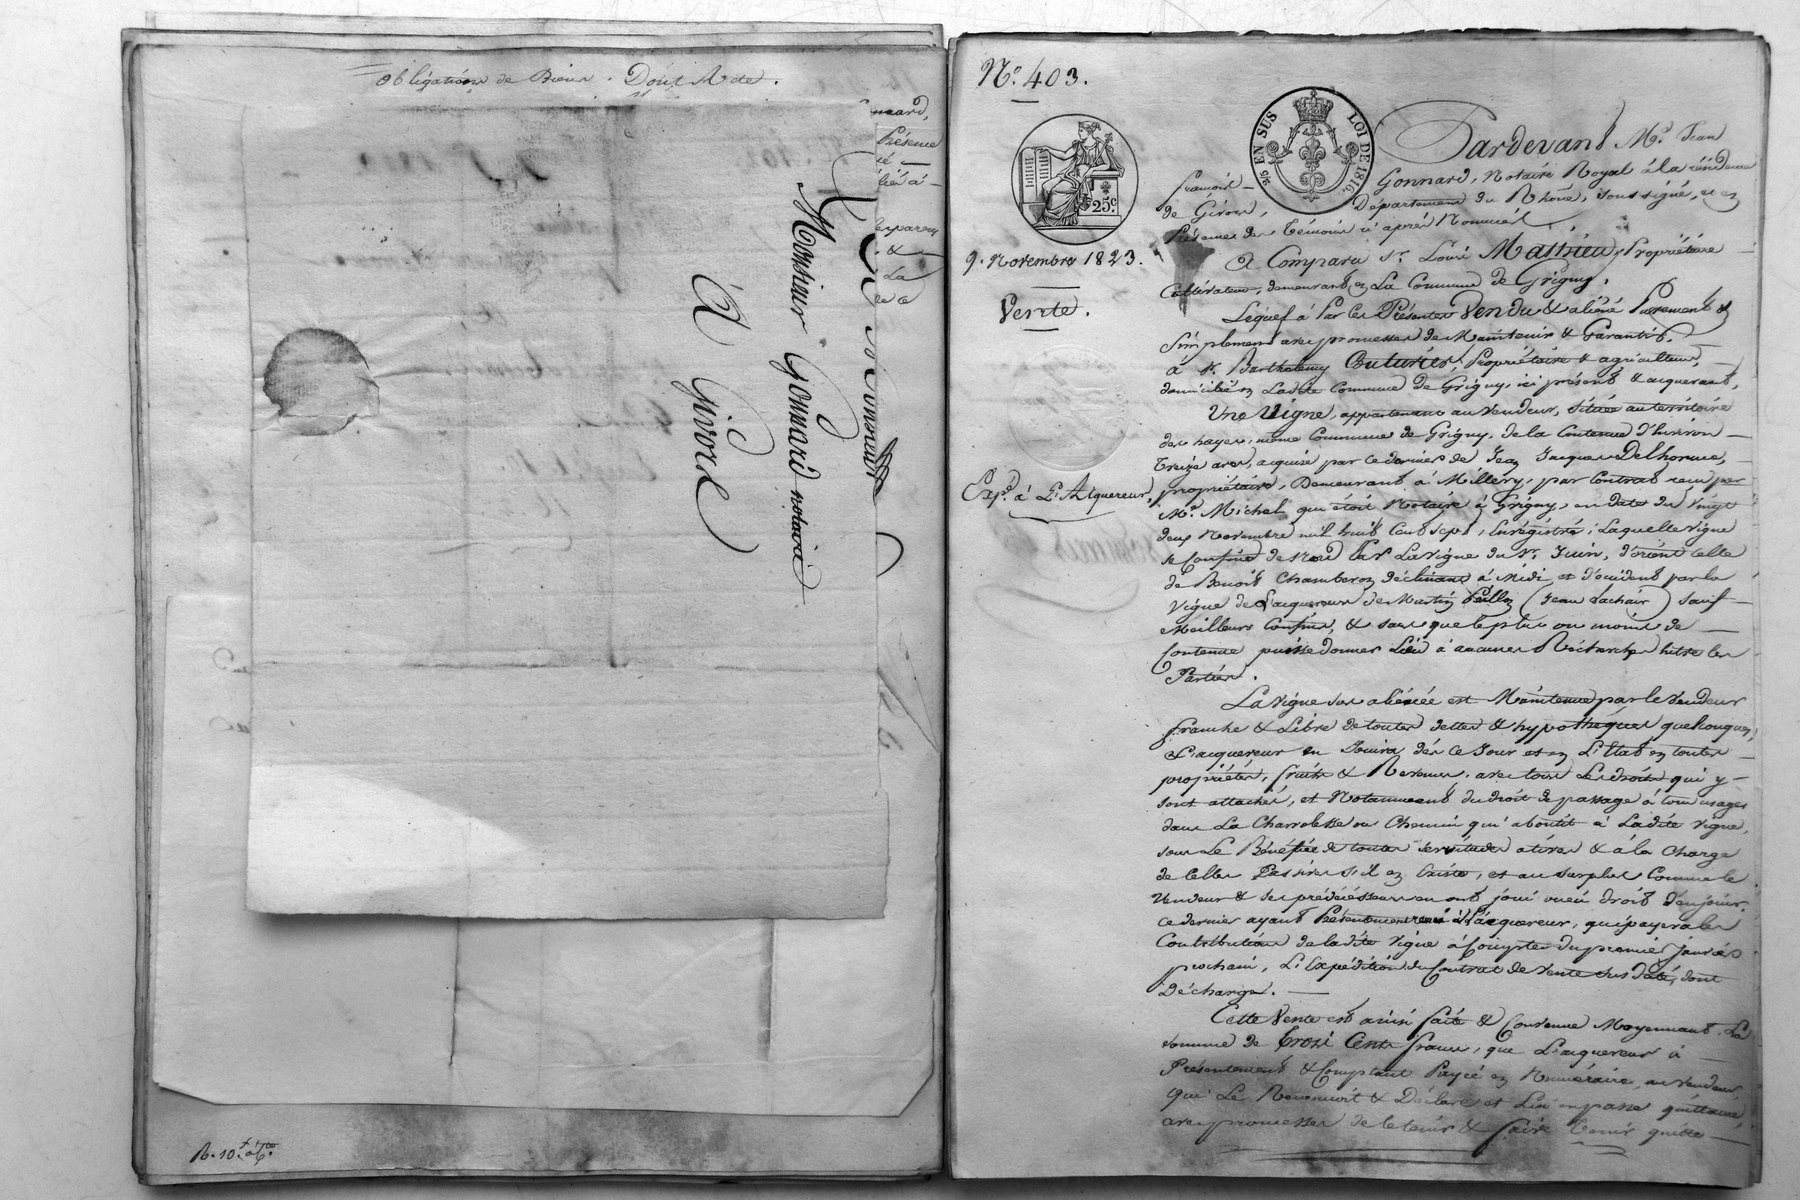 Obligation de Biens. Dont Acte.
Monsieur
Monsieur Gonnard notaire
à Givors
N.º 403.
9. Novembre 1823.
Vente.
Exp.º à L'Acquereur,
25.c
5/c EN SUS LOI DE 1816.
Pardevant M.e Jean
françois Gonnard, Notaire Royal à la résidence
de Givors, Département du Rhône, soussigné, et en
Présence des témoins ci après Nommés
A Comparu s.r Louis Mathieu, Propriétaire
Cultivateur, demeurant en La Commune de Grigny,
Lequel à Par Ces Présentes Vendu & aliéné Purement &
Simplement avec promesses de Maintenir & Garantir,
à s.r Barthelemy Buturies, Propriétaire & agriculteur,
domicilié en Ladite Commune de Grigny, ici présent & acquerant,
Une Vigne, appartenant au Vendeur, située au territoire
des hayes, même Commune de Grigny, de la Contenue d'Environ
treize ares, acquise par ce dernier de Jean Jacques Delhorme,
propriétaire, Demeurant à Millery, par Contrat reçu par
M.e Michel qui étoit Notaire à Grigny, en date du Vingt
deux Novembre mil huit Cent Sept, Enregistré; Laquelle Vigne
se Confine de Nord Par La Vigne du s.r Juin, d'orient Celle
de Benoit Chamberon déclinant à Midi, et d'occident par la
Vigne de L'acquereur de Martin Peillon (Jean Lachair) sauf
Meilleurs Confins, & sans que le plus ou moins de
Contenue puisse donner Lieu à aucunes Recherches Entre les
Parties.
La Vigne sus aliénée est Maintenue par le Vendeur
franche & Libre de toutes dettes & hypotheques quelconques,
L'acquereur en Jouira dès ce Jour et en L'Etat en toutes
propriétés, fruits & Revenus, avec tous Les droits qui y
sont attachés, et Notamment du droit de passage à tous usages
dans La CharroLesse ou Chemin qui aboutit à Ladite Vigne,
sous Le Bénéfice de toutes servitudes actives & à la Charge
de Celles Passives s'il en Existe, et au surplus Comme le
Vendeur & ses prédécesseurs en ont joui ou eu droit d'en jouir,
ce dernier ayant Présentement remis à L'acquereur, qui payera les
Contributions de ladite Vigne à Compter du premier Janvier
prochain, L'Expédition du Contrat de Vente sus daté, dont
Décharge.
Cette Vente est ainsi faite & Convenue Moyennant La
Somme de trois Cents francs, que L'acquereur à
Présentement & Comptant Payée en Numéraire au Vendeur
qui Le Reconnoit & Déclare et Lui en passe quittance,
avec promesses de le tenir & faire tenir quitte